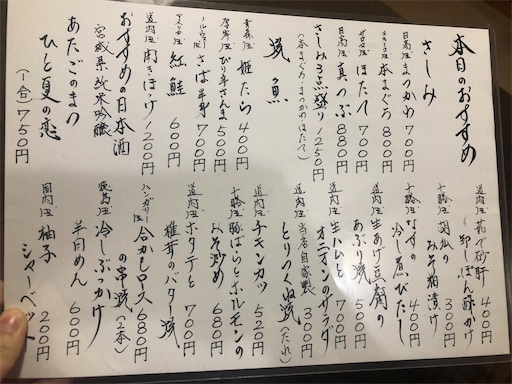 本日のおすすめ
さしみ
日高産 まつかわ 700円
メキシコ産 本まぐろ 800円
日高産 ほたて 700円
日高産 真つぶ 880円
さしみ3点盛り 1250円
(本まぐろ・まつかわ・ほたて)
焼魚
青森産 姫たら 400円
厚岸産 ぴり辛さんま 500円
ノルウェー産 さば半身 700円
アメリカ産 紅鮭 600円
道内産 開きほっけ 1200円
おすすめの日本酒
宮城県 純米吟醸
あたごのまつ
ひと夏の恋
(一合) 750円
道内産 茹で砂肝 400円
卸しぽん酢かけ
十勝産 胡瓜の 300円
みそ粕漬け
十勝産 なすの 400円
冷し煮びたし
道内産 生あげ豆腐の
あぶり焼 500円
道内産 生ハムと 700円
オニオンのサラダ
道内産 当店自家製 300円
とりつくね焼(たれ)
道内産 チキンカツ 520円
十勝産 豚ばらとホルモンの
みそ炒め 680円
道内産 ホタテと 700円
椎茸のバター焼
ハンガリー産 合がもロース 680円
の串焼(2本)
鹿島産 冷しぶっかけ
半田めん 600円
国内産 柚子 200円
シャーベット